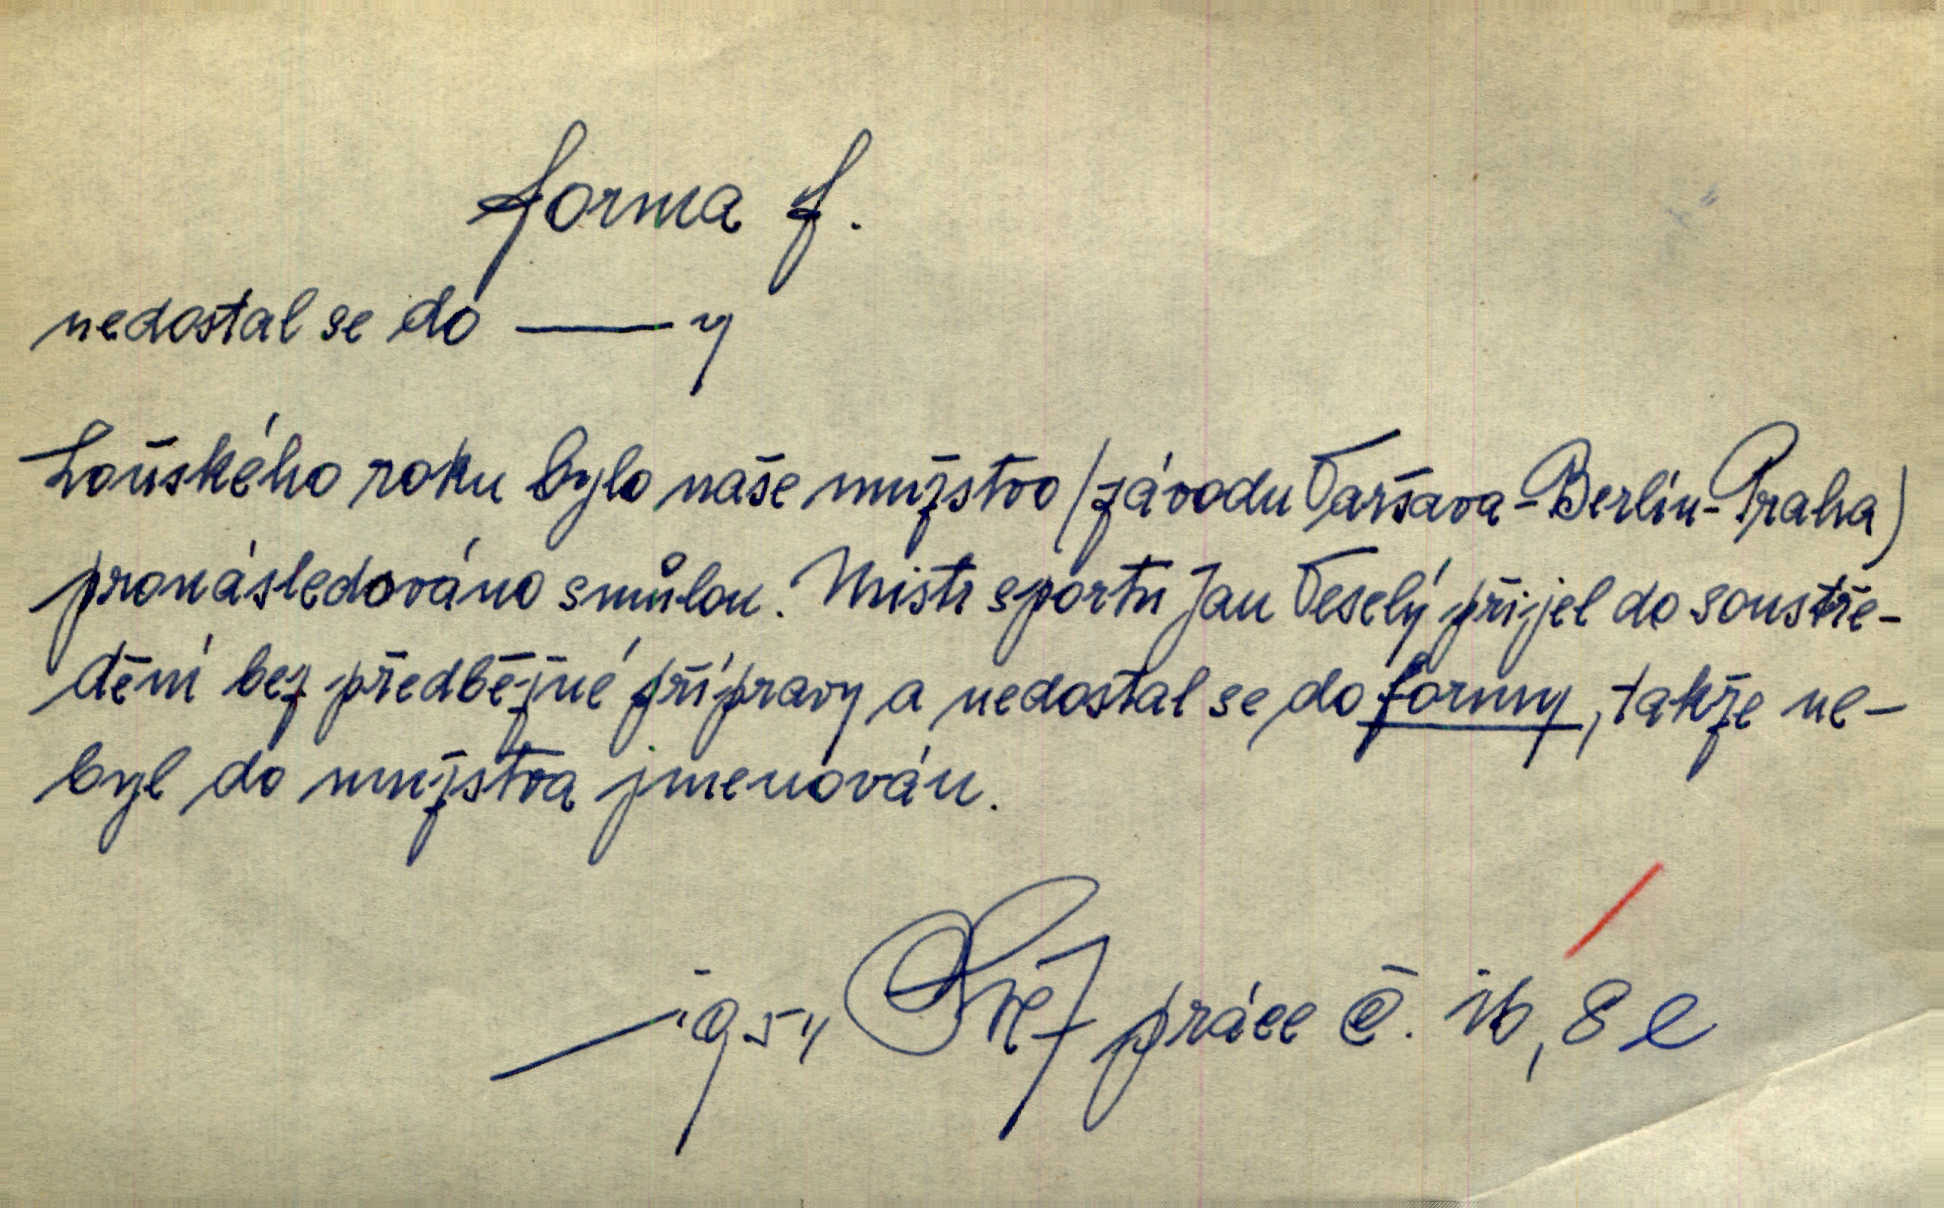 forma f.
nedostal se do —— y
Loňského roku bylo naše mužstvo (závodu Varšava-Berlín-Praha)
pronásledováno smůlou. Mistr sportu Jan Veselý přijel do soustře-
dění bez předběžné přípravy a nedostal se do formy, takže ne-
byl do mužstva jmenován.
1954, Svět práce č. 16, 8